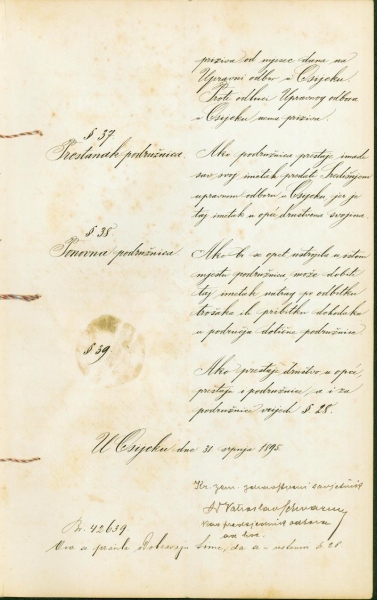 priziva od mjesec dana na
Upravni odbor u Osijeku
Proti odluci Upravnog odbora
u Osijeku nema priziva.
§ 37
Prestanak podružnica.
Ako podružnica prestaje imade
sav svoj imetak predati Središnjem
upravnom odboru u Osijeku jer je
taj imetak u opće društvena svojina.
§ 38
Ponovna podružnica
Ako bi se opet ustrojila u istom
mjestu podružnica može dobiti
taj imetak natrag po odbitku
troška ih pribitku dohodaka
u području dotične podružnice
§ 39.
Ako prestaje društvo u opće
prestaju i podružnice, a i za
podružnice vrijedi § 28.
U Osijeku dne 31 srpnja 1895
Kr. zem. zdravstveni savjetnik
Dr Vatroslav Schwarz
kao predsjednik odbora
Br. 42639
Ova se pravila da u § 28